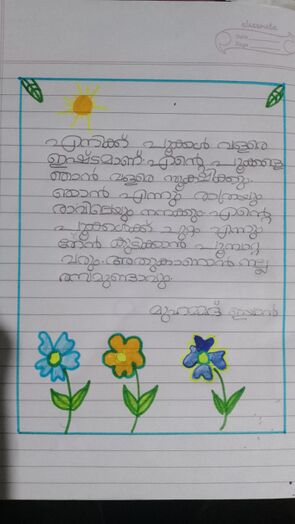 classmate
Date
Page
എനിക്ക് പൂക്കൾ വളരെ
ഇഷ്ടമാണ്. എന്റെ പൂക്കളെ
ഞാൻ വളരെ സൂക്ഷിക്കും.
ഞാൻ എന്നും രാത്രിയും
രാവിലെയും നനക്കും. എന്റെ
പൂക്കൾക്ക് ചുറ്റും എന്നും
തേൻ കുടിക്കാൻ പൂമ്പാറ്റ
വരും. അതുകാണാൻ നല്ല
രസമുണ്ടാവും.
മുഹമ്മദ്